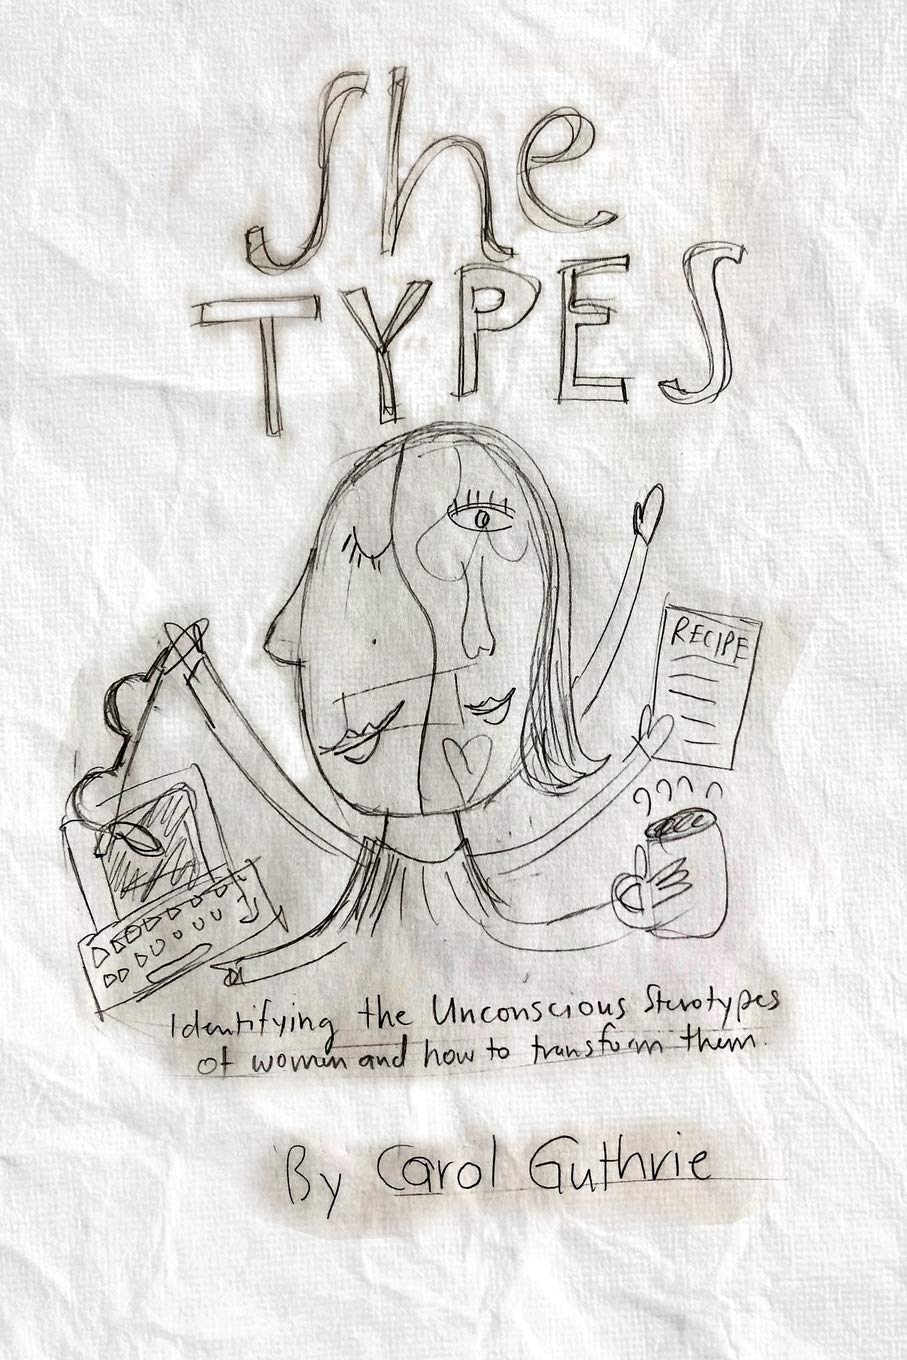 She
TYPES
RECIPE
Identifying the Unconscious Sterotypes
of women and how to transform them.
By Carol Guthrie